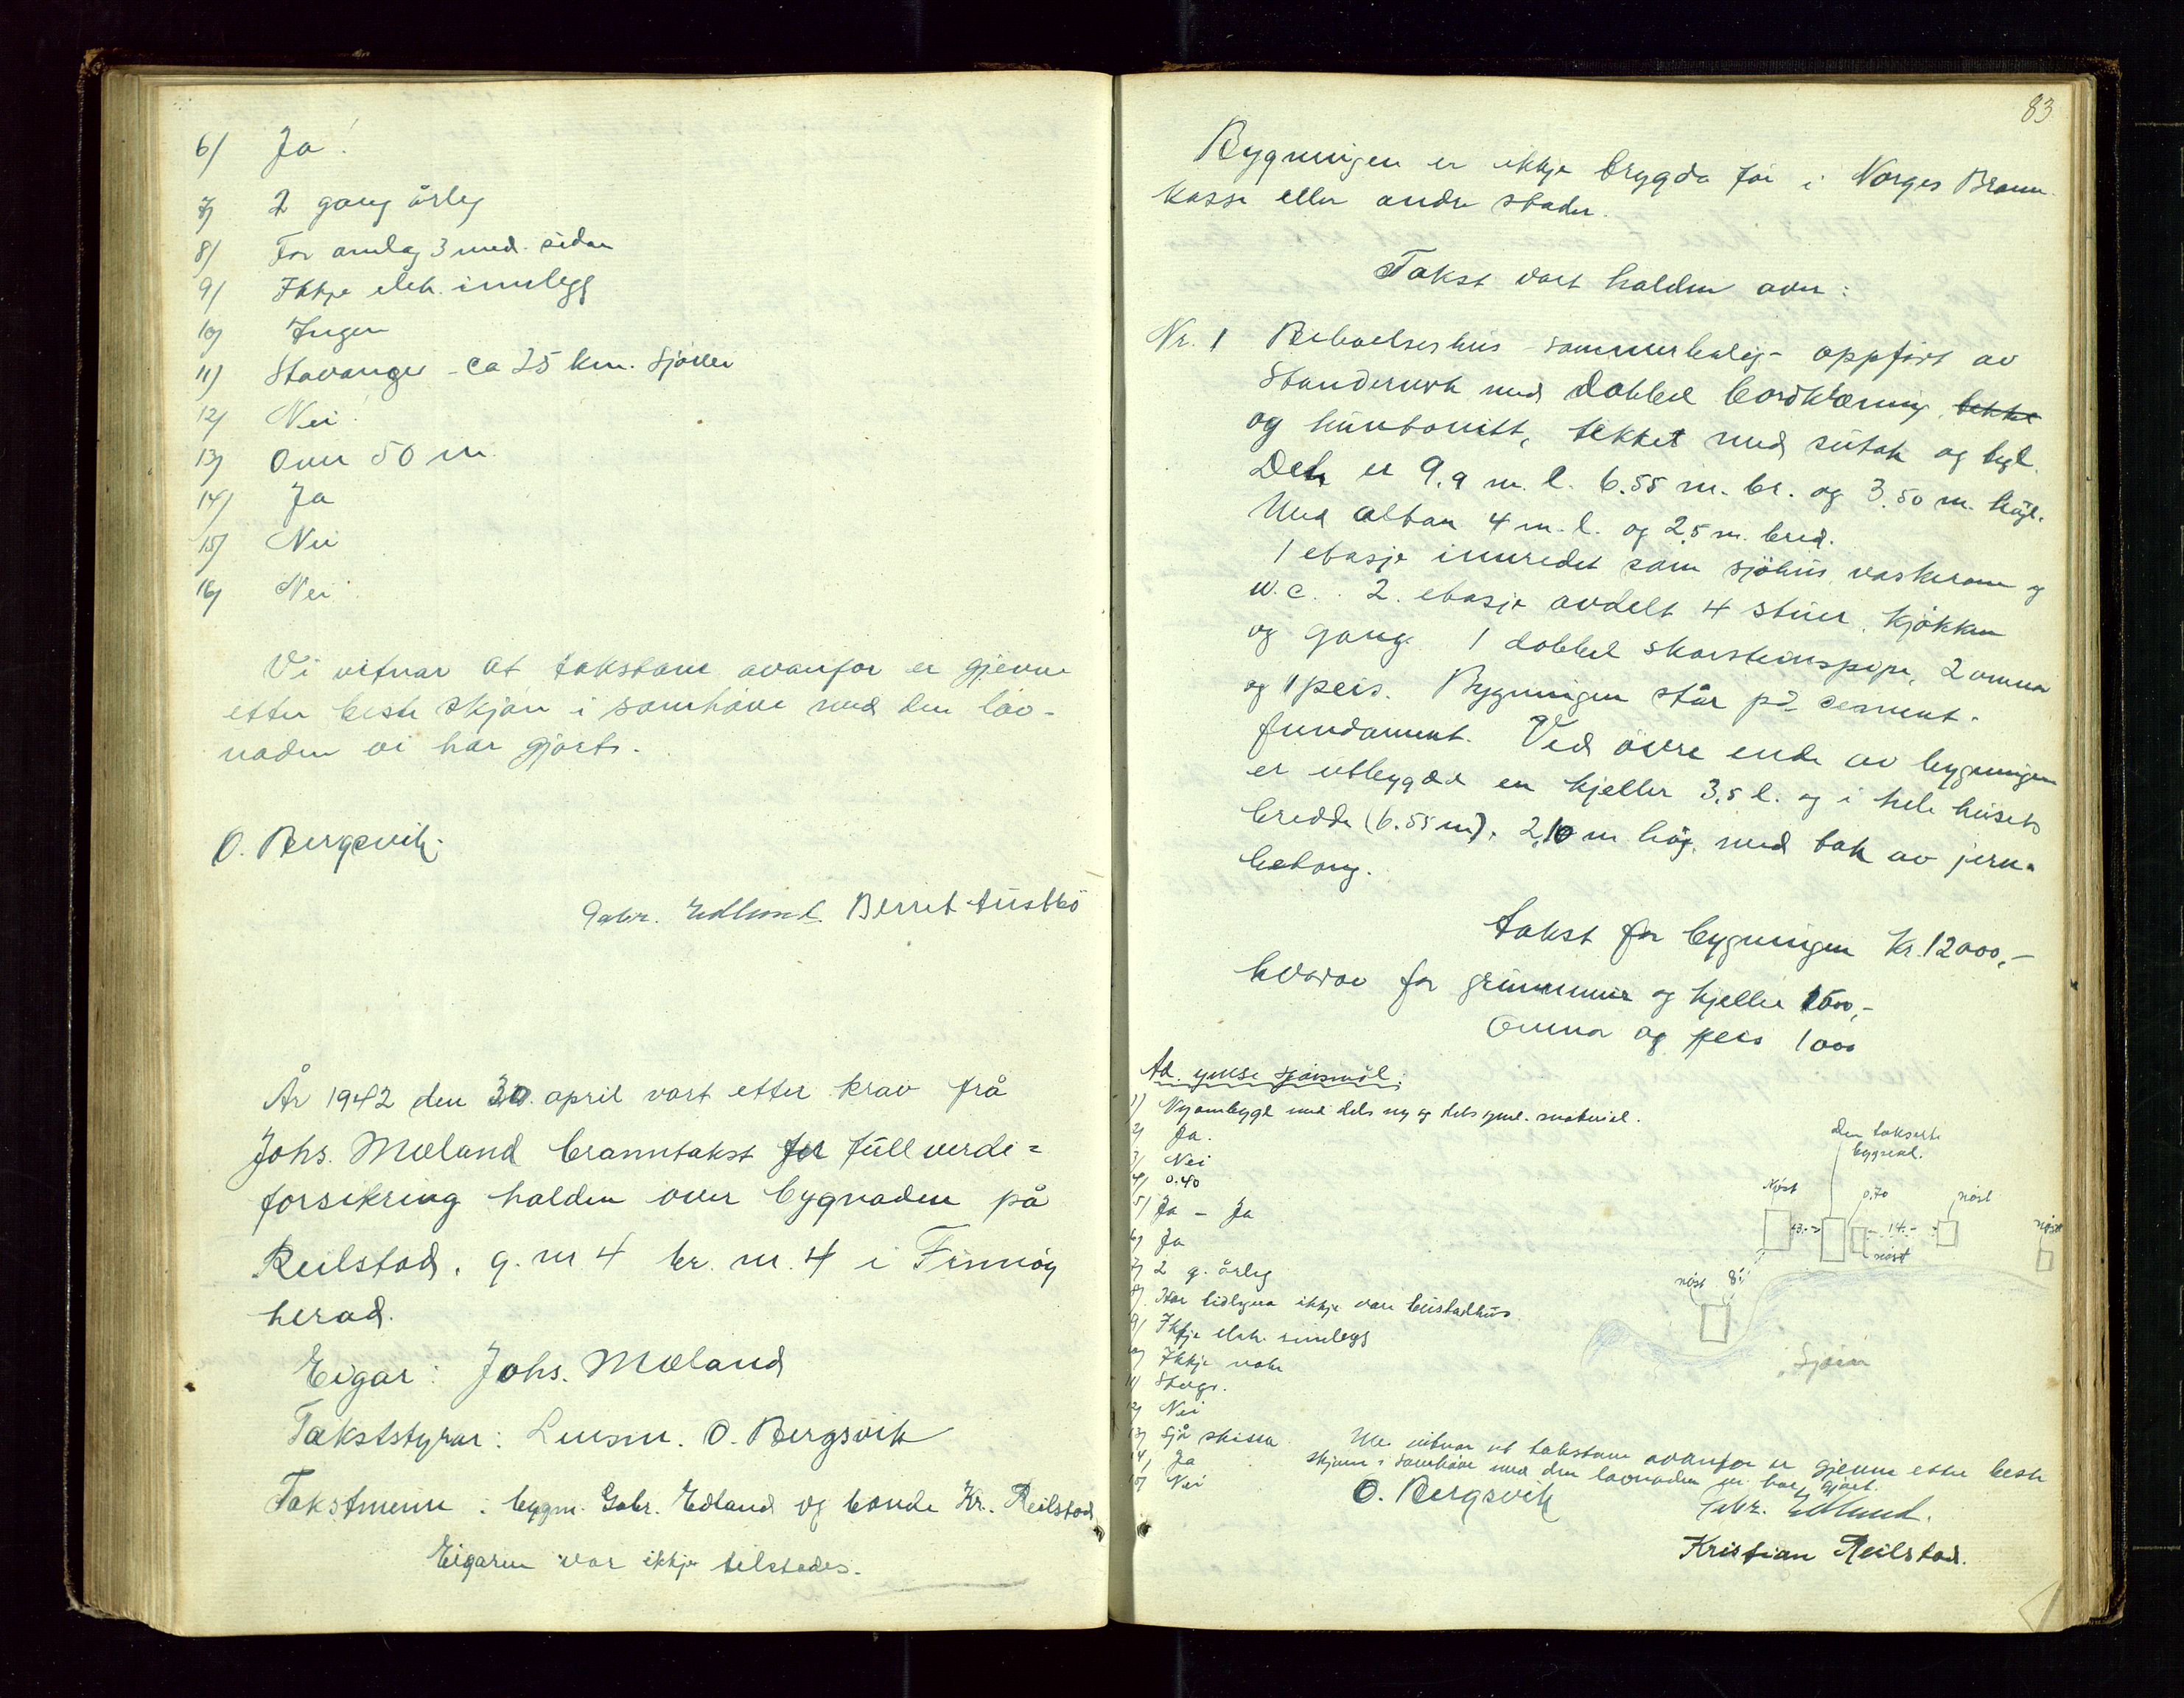 6/ Ja!
7) 2 gang årleg
8/ For omlag 3 mnd. sidan
9/ Ikkje elek. innlegg
10) Ingen
11) Stavanger - ca 25 km. sjøvei
12/ Nei.
13) Over 50 m.
14/ Ja
15/ Nei
16) Nei
Vi vitnar at takstane ovanfor er gjevne
etter beste skjøn i samhøve med den lov-
naden vi har gjort.
O. Bergsvik.
Gabr. Edland. Berret Austbö
År 1942 den 30. april vart etter krav frå
Johs. Mæland branntakst for fullverde=
forsikring halden over bygnaden på
Reilstad, g. nr 4 br. nr. 4 i Finnøy
herad.
Eigar: Johs. Mæland
Takststyrar: Lensm. O. Bergsvik
Takstmenn: bygm. Gabr. Edland og bonde Kr. Reilstad
Eigaren var ikkje tilstades.
83
Bygningen er ikkje trygda før i Norges Brann-
kasse eller andre stader.
Takst vart halden over:
Nr. 1 Beboelseshus - sommerbolig - oppført av
Standerverk med dobbel bordklæning, tekke
og huntonitt, tekket med sutak og tegl.
Det er 9.9 m. l. 6.55 m. br. og 3.50 m. høgt.
Med altan 4 m. l. og 2.5 m. bred.
1 etasje innredet som sjøhus, vaskerom og
w.c. 2. etasje avdelt 4 stuer, kjøkken
og gang. 1 dobbel skorsteinspipe, 2 omnar
og 1 peis. Bygningen står på cement-
fundament. Ved øvre ende av bygningen
er utbygdd en kjeller 3.5 l. og i hele husets
bredde (6.55 m), 2.10 m. høg, med tak av jern-
betong.
Takst for bygningen Kr. 12000,-
hvorav for grunnmur og kjeller 1500,-
Omnar og peis 1000
Ad. ymse spørsmål:
1) Nyombygt med dels ny og dels gml. material.
2) Ja.
3) Nei
4) 0.40
5) Ja - Ja
6) Ja
7) 2 g. årleg
8) Har tidlegare ikkje vore bustadhus
9) Ikkje elek. innlegg
10) Ikkje nokre
11) Stvgr.
12) Nei
13) Sjå skissa
14) Ja
15) Nei
den takserte
bygnad.
Nøst
0.70
nøst
nøst
13.-
14.-
nøst
nøst
8.-
Sjøen
Me vitnar at takstane ovanfor er gjevne etter beste
skjønn i samhøve med den lovnaden vi har gjort.
O. Bergsvik
Gabr. Edland.
Kristian Reilstad.